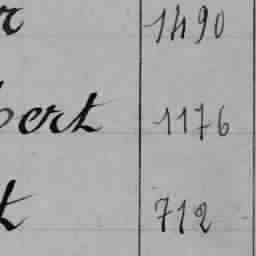 r 1490
bert 1176
t 712